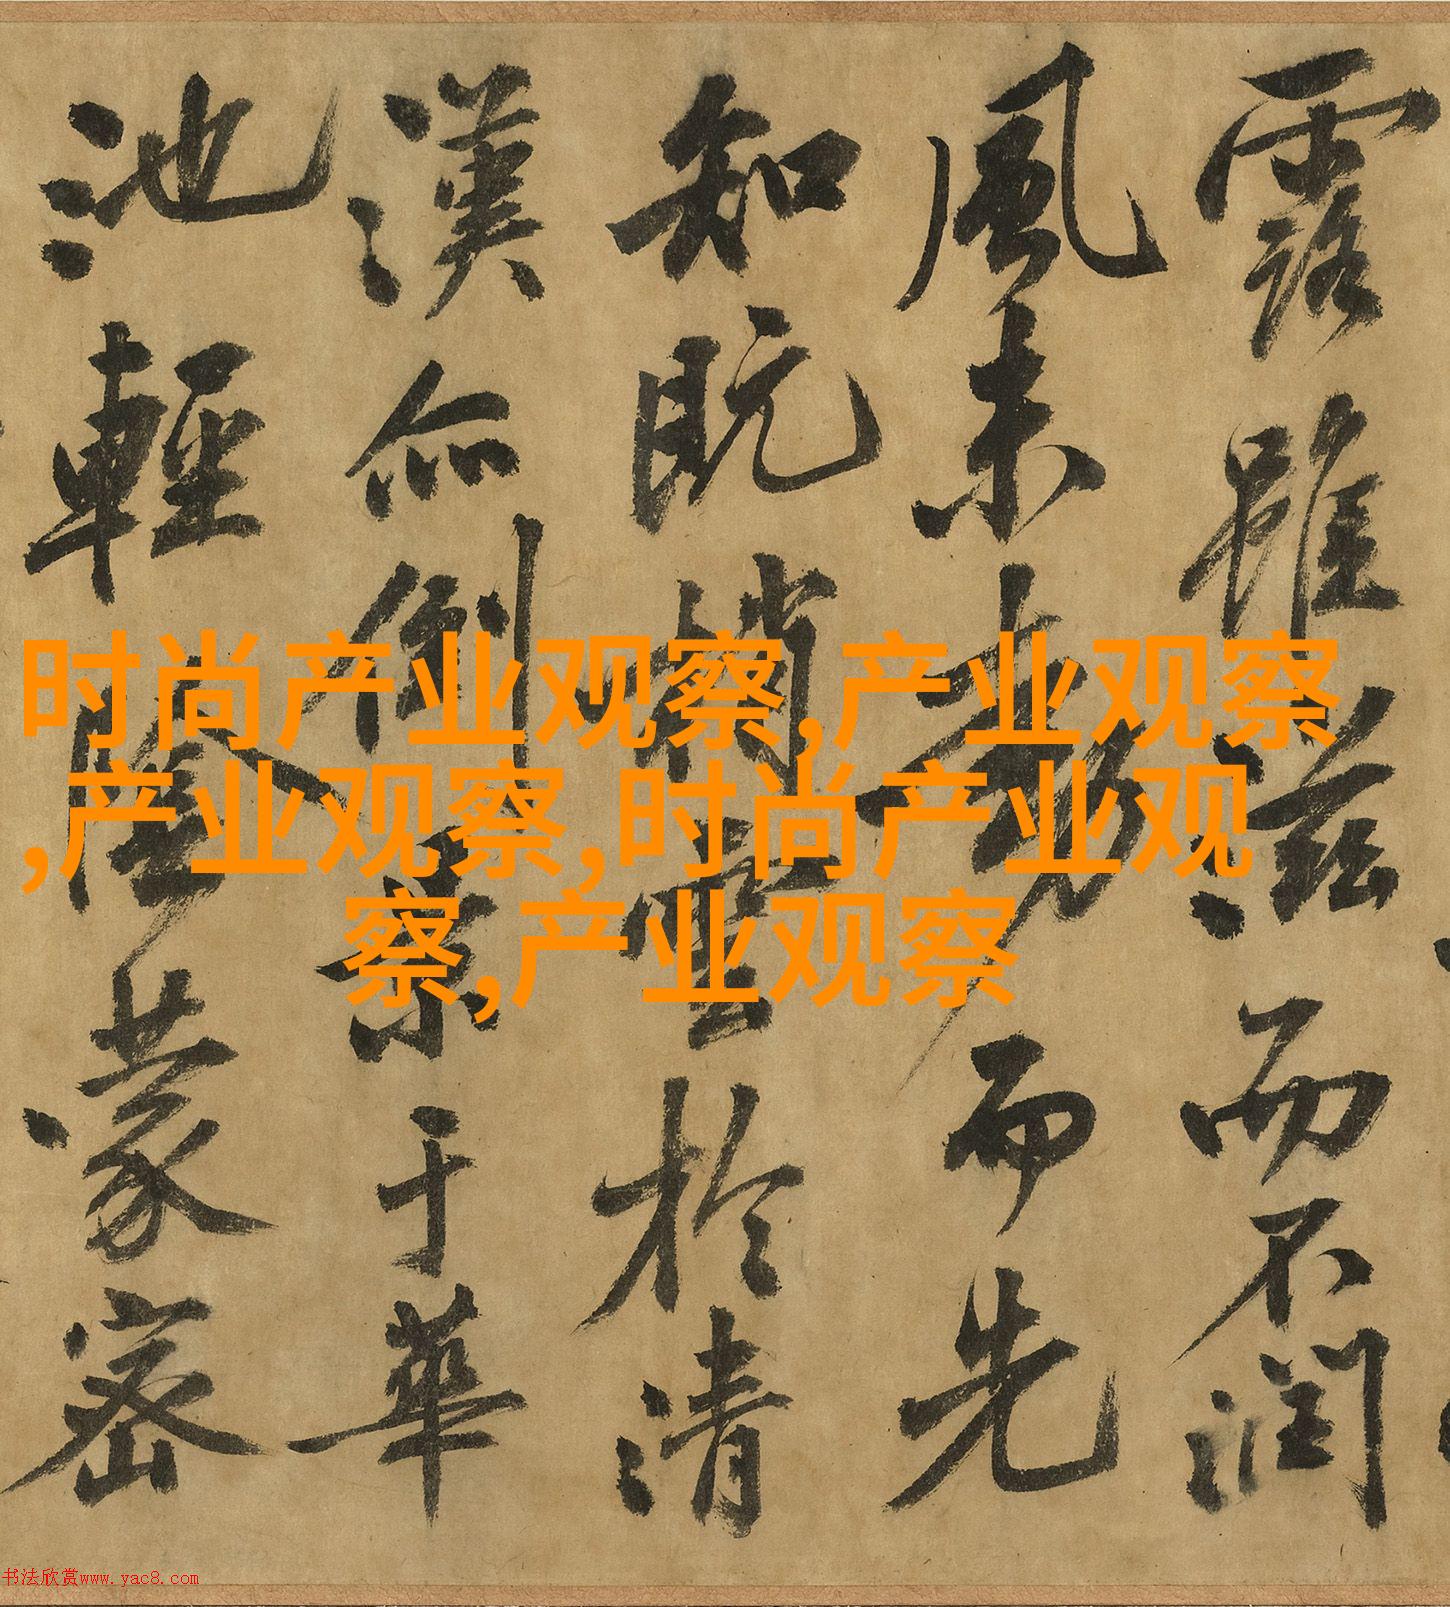 露雖滋而不潤
風未動而先
知既梢雲於清
漢亦倒景于華
池輕陰蒙密
时尚产业观察,产业观察
,产业观察,时尚产业观
察,产业观察
书法欣赏www.yac8.com